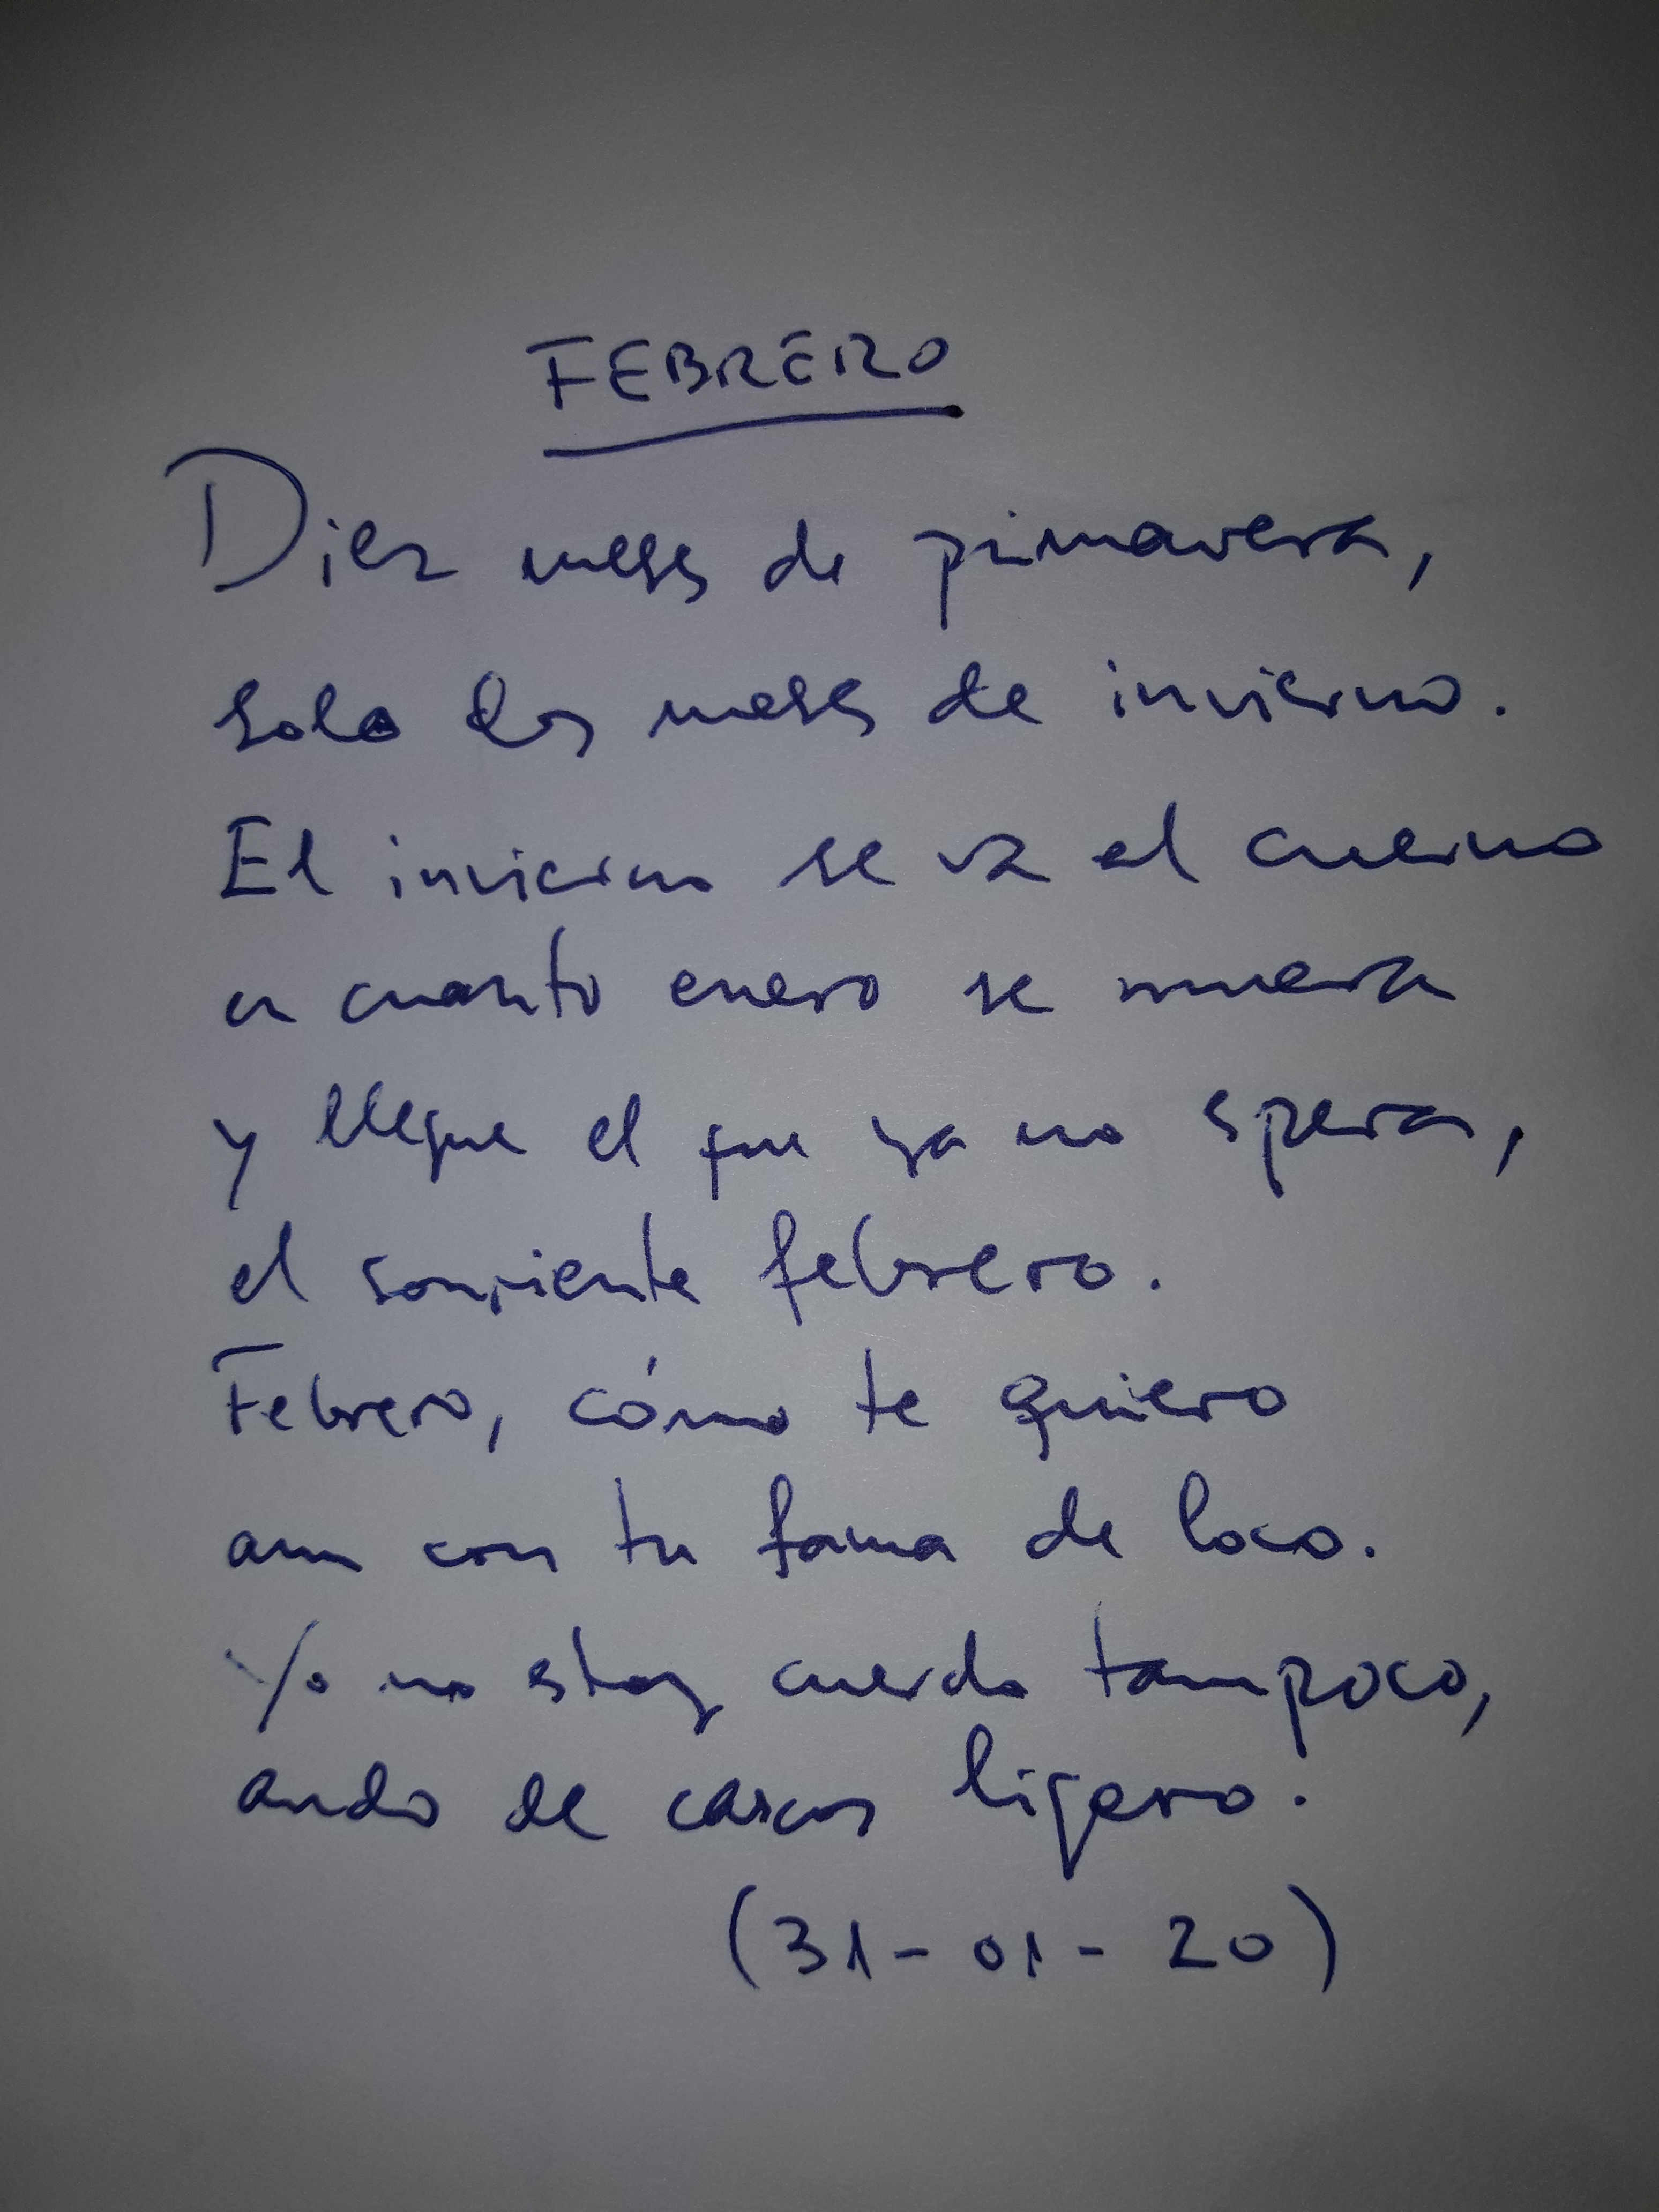 FEBRERO
Diez meses de primavera,
solo dos meses de invierno.
El invierno se va al cuerno
en cuanto enero se muera
y llegue el que ya no espera,
el sonriente febrero.
Febrero, cómo te quiero
aun con tu fama de loco.
Yo no estoy cuerdo tampoco,
ando de cascos ligero.
(31-01-20)